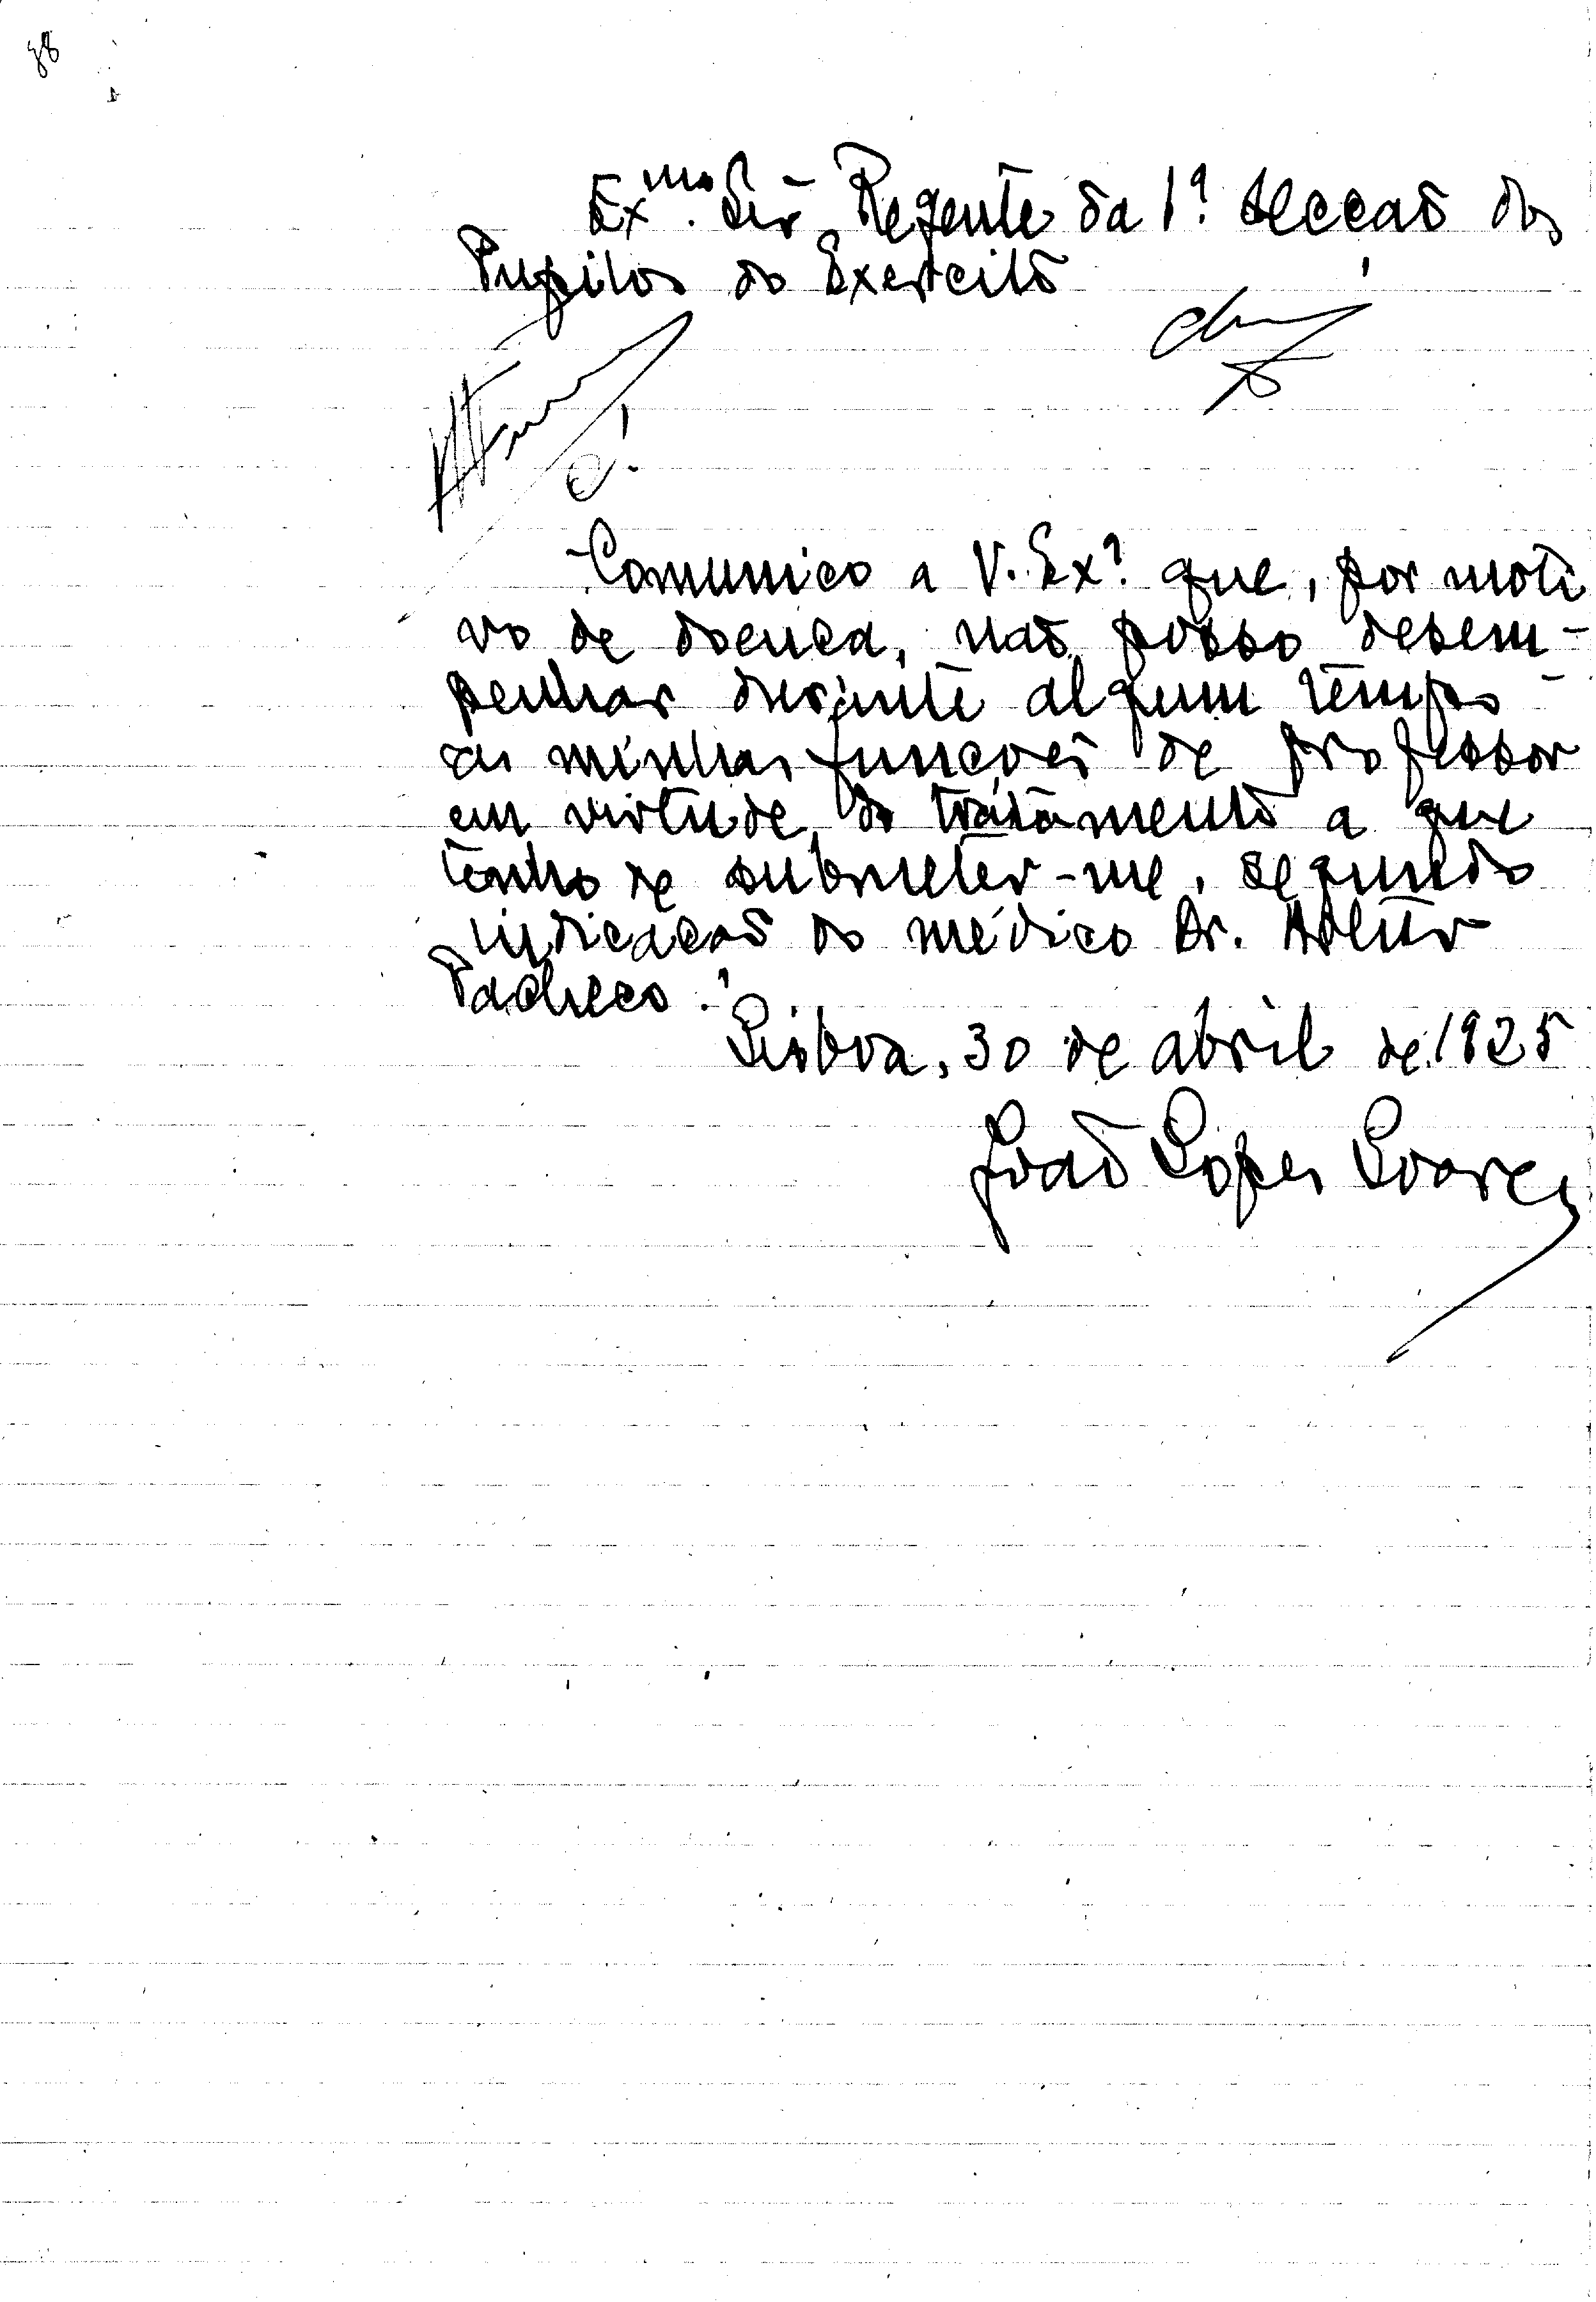 38
Ex.mo Snr. Regente da 1ª secção dos
Pupilos do Exercito
Comunico a V. Exª que, por moti
vo de doença, não posso desem-
penhar durante algum tempo
as minhas funções de professor
em virtude do tratamento a que
tenho de submeter-me, segundo
indicação do médico Dr.
Pacheco.
Lisboa, 30 de abril de 1925
João Lopes Soares